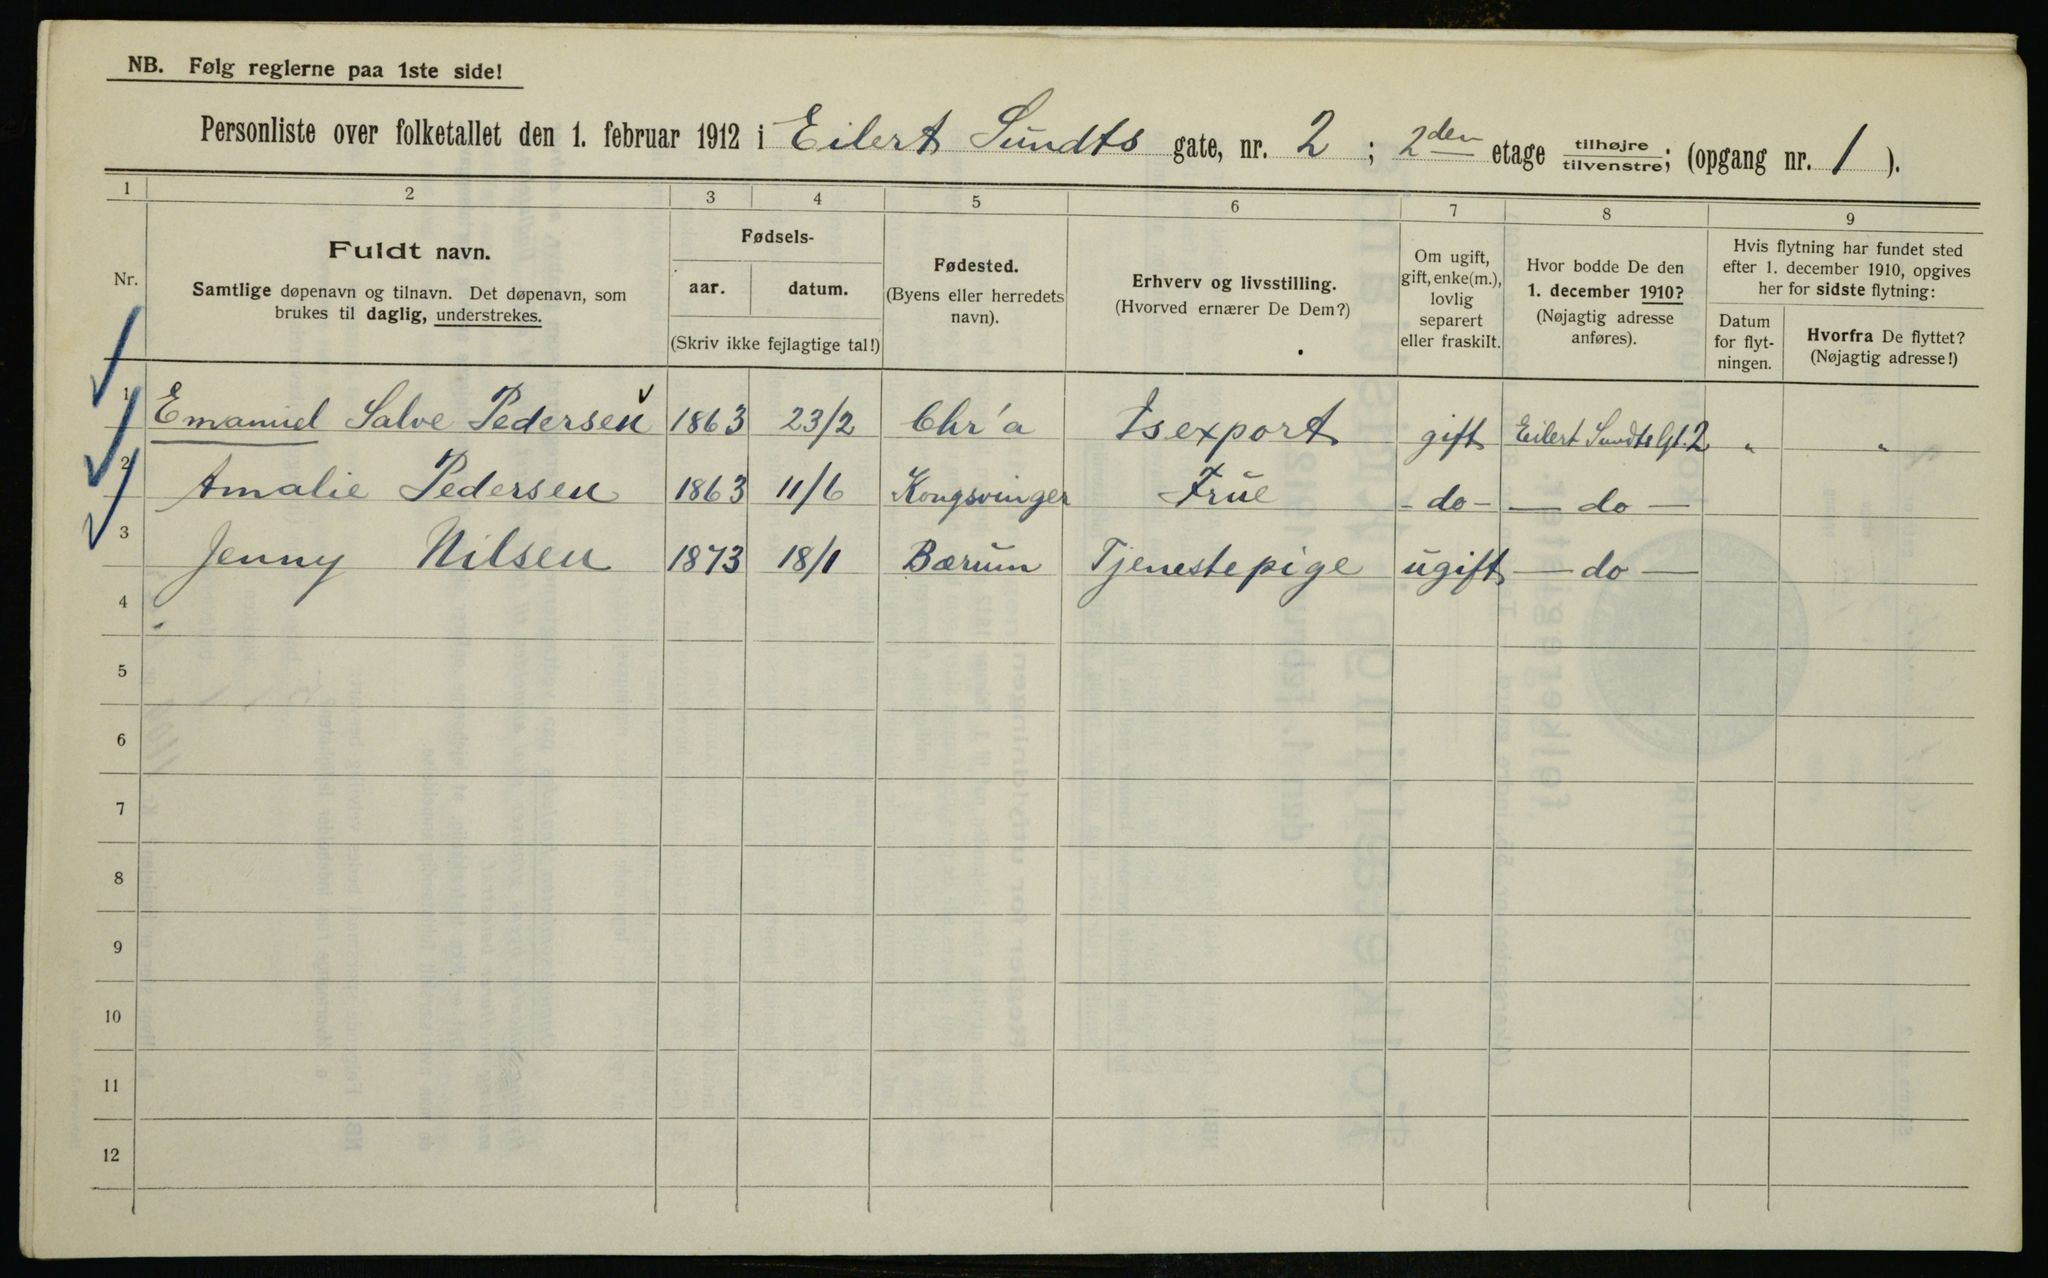 NB. Følg reglerne paa 1ste side!
Personliste over folketallet den 1. februar 1912 i Eilert Sundts gate, nr. 2 ; 2den etage tilhøjre / tilvenstre; (opgang nr. 1 ).
1 2 3 4 5 6 7 8 9
Nr.
Fuldt navn.
Samtlige døpenavn og tilnavn. Det døpenavn, som
brukes til daglig, understrekes.
Fødsels-
aar. datum.
(Skriv ikke fejlagtige tal!)
Fødested.
(Byens eller herredets
navn).
Erhverv og livsstilling.
(Hvorved ernærer De Dem?)
Om ugift,
gift, enke(m.),
lovlig
separert
eller fraskilt.
Hvor bodde De den
1. december 1910?
(Nøjagtig adresse
anføres).
Hvis flytning har fundet sted
efter 1. december 1910, opgives
her for sidste flytning:
Datum
for flyt-
ningen.
Hvorfra De flyttet?
(Nøjagtig adresse!)
1 Emanuel Salve Pedersen 1863 23/2 Chr'a Isexport gift Eilert Sundts Gt. 2 " "
2 Amalie Pedersen 1863 11/6 Kongsvinger Frue - do - - do -
3 Jenny Nilsen 1873 18/1 Bærum Tjenestepige ugift - do -
4
5
6
7
8
9
10
11
12